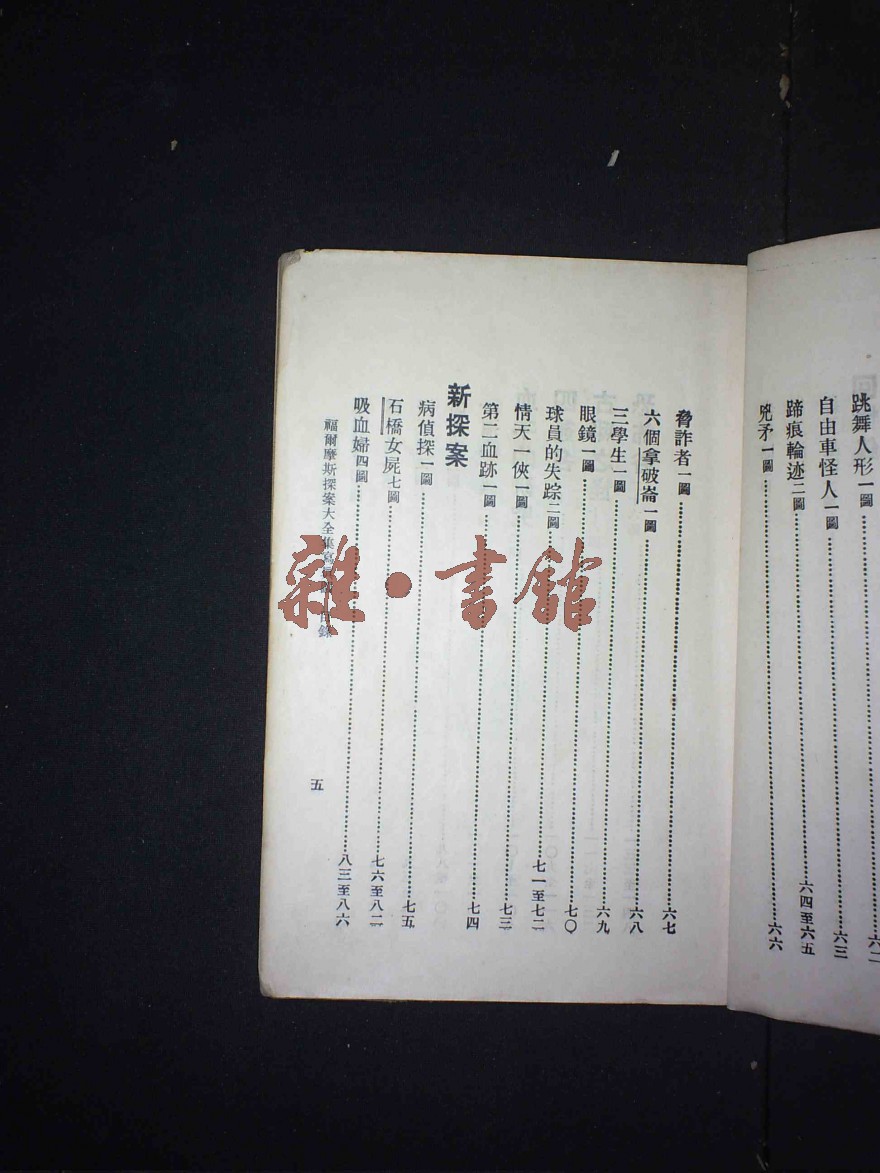 跳舞人形一圖⋯⋯六二
自由車怪人一圖⋯⋯六三
蹄痕輪迹二圖⋯⋯六四至六五
兇矛一圖⋯⋯六六
脅詐者一圖⋯⋯六七
六個拿破崙一圖⋯⋯六八
三學生一圖⋯⋯六九
眼鏡一圖⋯⋯七〇
球員的失踪二圖⋯⋯七一至七二
情天一俠一圖⋯⋯七三
第二血跡一圖⋯⋯七四
新探案
病偵探一圖⋯⋯七五
石橋女屍七圖⋯⋯七六至八二
吸血婦四圖⋯⋯八三至八六
福爾摩斯探案大全集 目錄
五
雜·書館